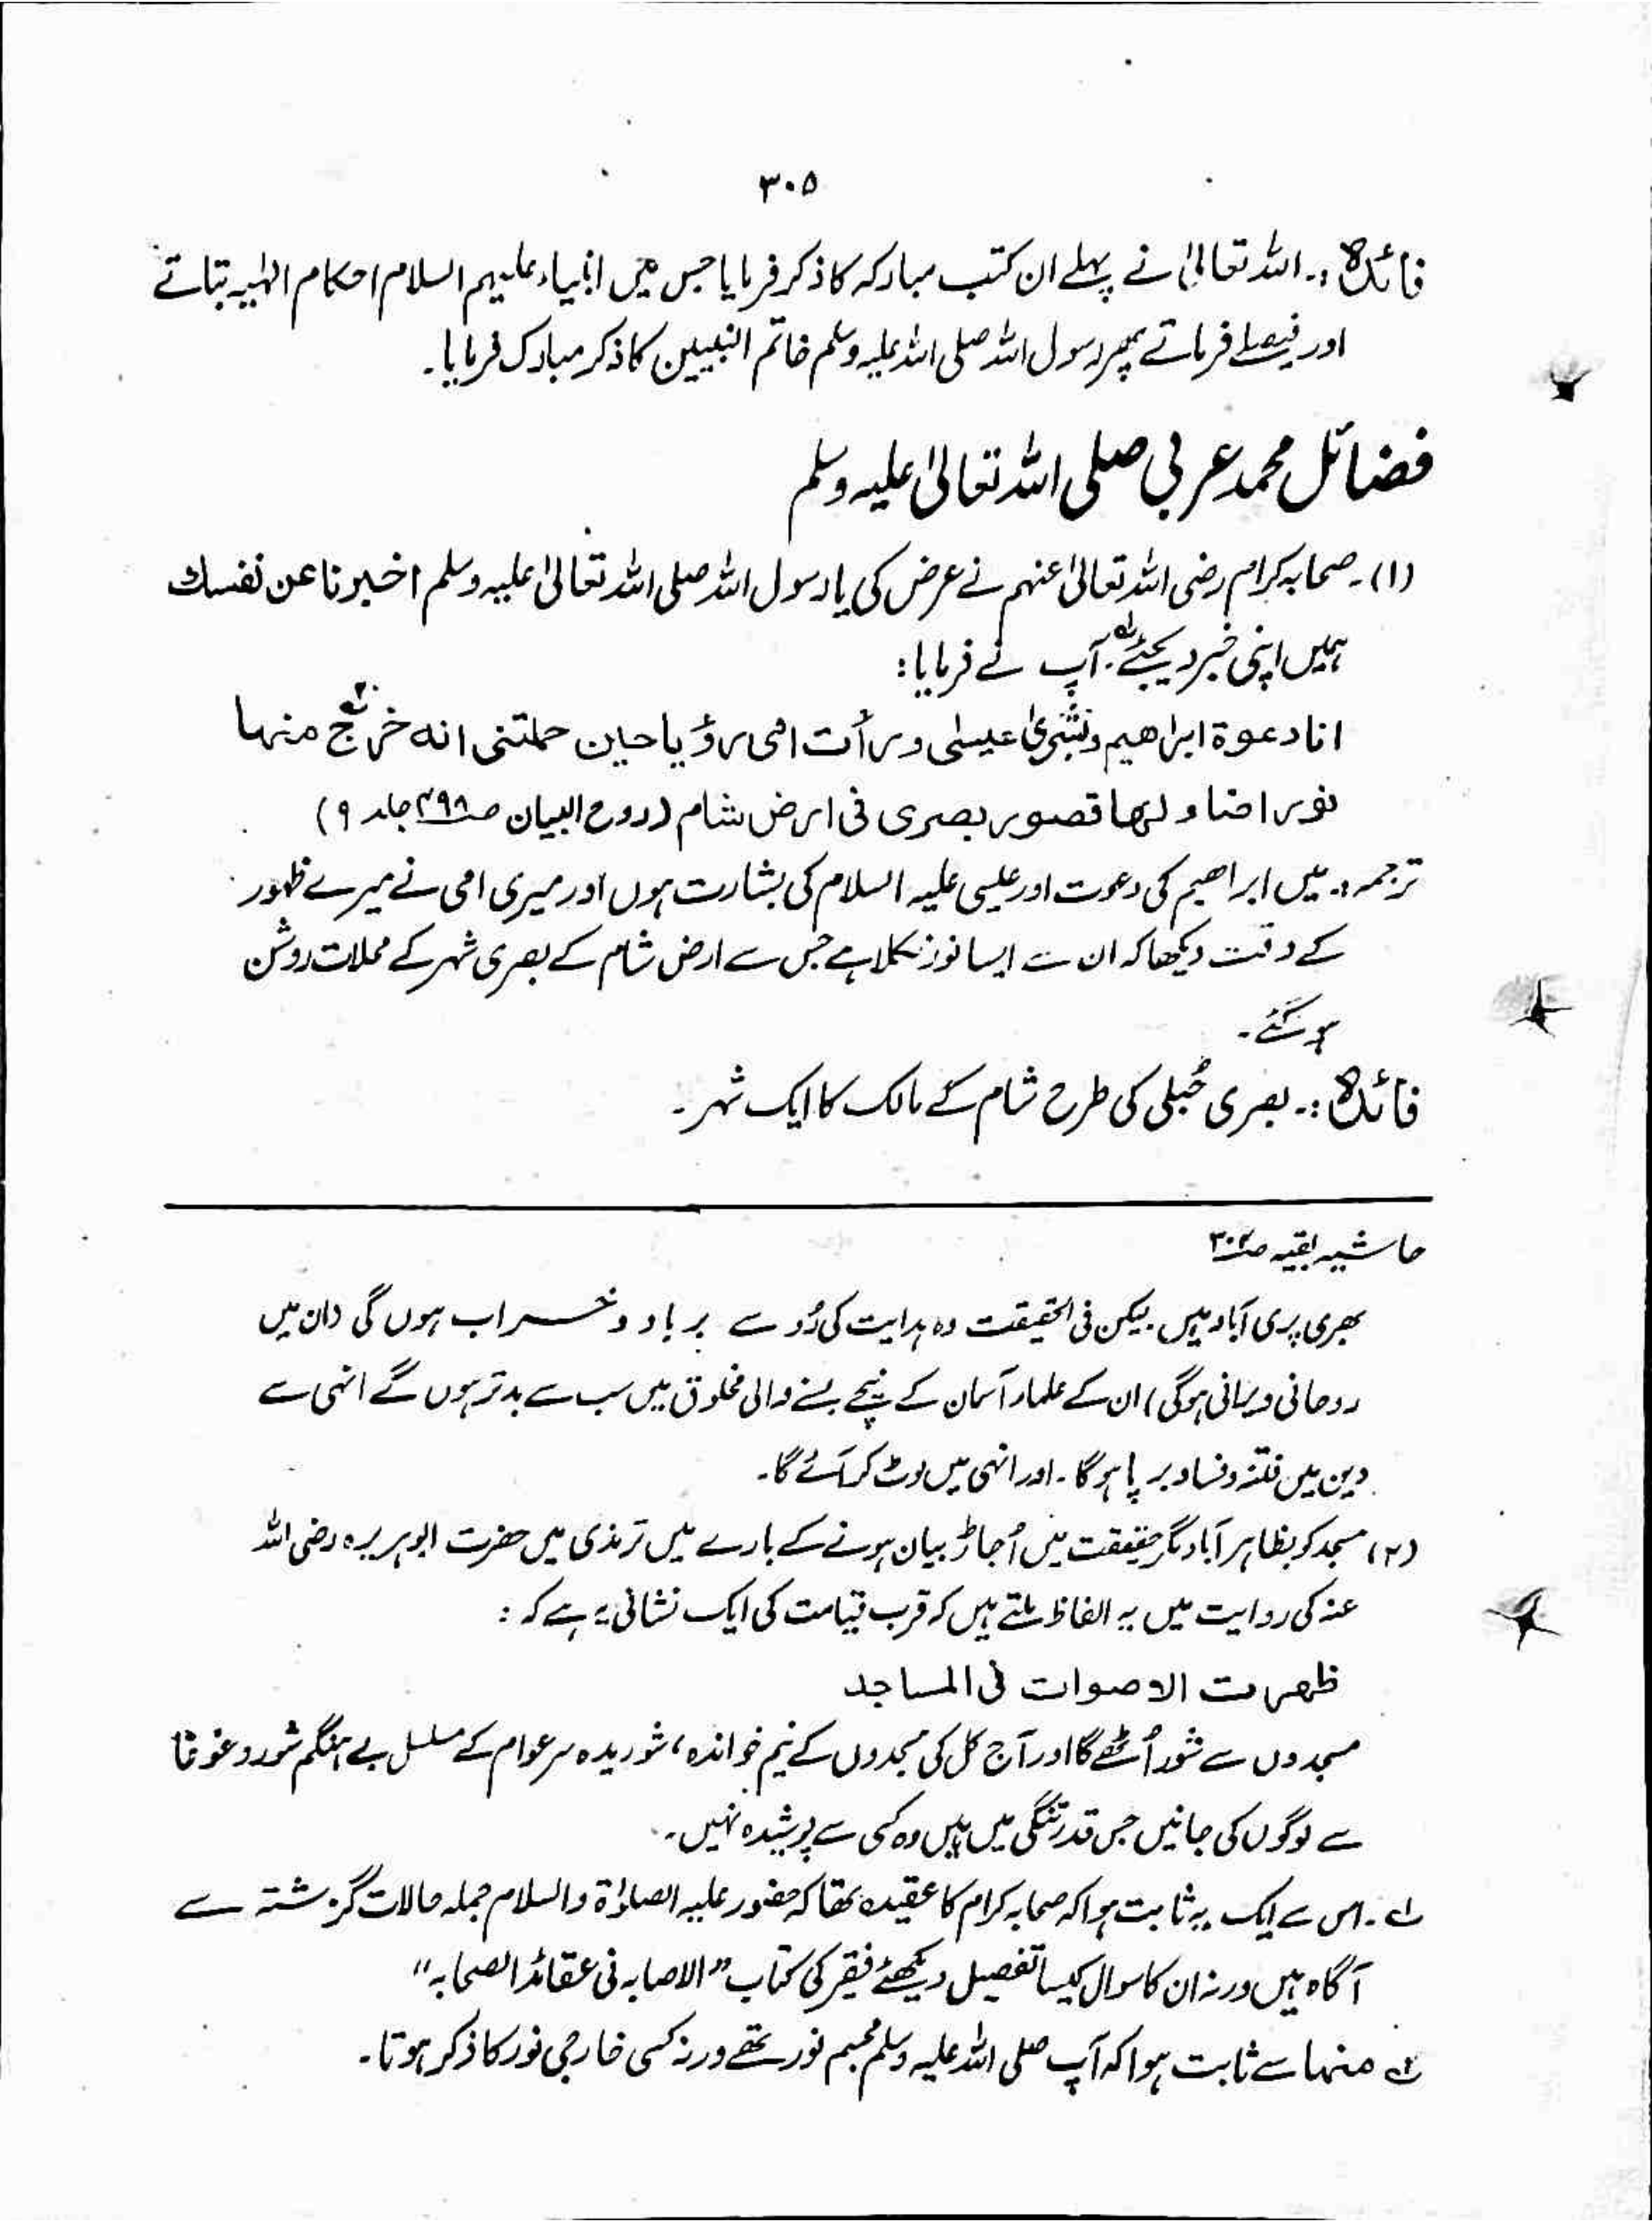 ۳۰۵
فائدہ :۔ اللہ تعالیٰ نے پہلے ان کتب مبارکہ کا ذکر فرمایا جس میں انبیاء علیہم السلام احکام الہٰیہ بتاتے
اور فیصلے فرماتے پھر رسول اللہ صلی اللہ علیہ وسلم خاتم النبیین کا ذکر مبارک فرمایا۔
فضائل محمد عربی صلی اللہ تعالیٰ علیہ وسلم
(۱)۔ صحابہ کرام رضی اللہ تعالیٰ عنہم نے عرض کی یا رسول اللہ صلی اللہ تعالیٰ علیہ وسلم اخبرنا عن نفسك
ہمیں اپنی خبر دیجئے۔ لہ آپ نے فرمایا:
انا دعوة ابراهيم وبشریٰ عیسٰی ورأت امی رؤیا حین حملتنی انه خرج منہا
نور اضاء لہا قصور بصری فی ارض شام (روح البیان صـ۴۹۸ جلد ۹)
ترجمہ :۔ میں ابراھیم کی دعوت اور عیسی علیہ السلام کی بشارت ہوں اور میری امی نے میرے ظہور
کے وقت دیکھا کہ ان سے ایسا نور نکلا ہے جس سے ارض شام کے بصری شہر کے محلات روشن
ہو گئے۔
فائدہ :۔ بصری حُبلی کی طرح شام کے مالک کا ایک شہر۔
حاشیہ بقیہ صـ۳۰۴
بھری پری آباد ہیں لیکن فی الحقیقت وہ ہدایت کی رُو سے برباد و خراب ہوں گی (ان میں
روحانی ویرانی ہوگی) ان کے علماء آسمان کے نیچے بسنے والی مخلوق میں سب سے بدتر ہوں گے انہی سے
دین میں فتنہ و فساد برپا ہوگا۔ اور انہی میں لوٹ کر آئے گا۔
(۲) مسجد کو بظاہر آباد مگر حقیقت میں اُجاڑ بیان ہونے کے بارے میں ترمذی میں حضرت ابوہریرہ رضی اللہ
عنہ کی روایت میں یہ الفاظ ملتے ہیں کہ قرب قیامت کی ایک نشانی یہ ہے کہ :
ظهرت الاصوات فی المساجد
مسجدوں سے شور اُٹھے گا اور آج کل کی مسجدوں کے نیم خواندہ، شوریدہ سر عوام کے مسلسل بے ہنگم شور و غوغا
سے لوگوں کی جانیں جس قدر تنگی میں ہیں وہ کسی سے پوشیدہ نہیں۔
لہ۔ اس سے ایک یہ ثابت ہوا کہ صحابہ کرام کا عقیدہ تھا کہ حضور علیہ الصلوٰۃ والسلام جملہ حالات گزشتہ سے
آگاہ ہیں ورنہ ان کا سوال کیسا تفصیل دیکھئے فقیر کی کتاب "الاصابہ فی عقائد الصحابہ"
۲ہ منہا سے ثابت ہوا کہ آپ صلی اللہ علیہ وسلم مجسم نور تھے ورنہ کسی خارجی نور کا ذکر ہوتا۔